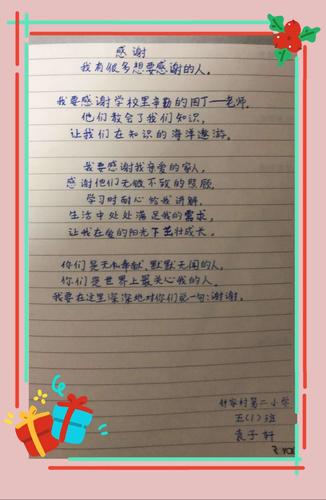 感谢
我有很多想要感谢的人。
我要感谢学校里辛勤的园丁—老师，
他们教会了我们知识，
让我们在知识的海洋遨游。
我要感谢我亲爱的家人，
感谢他们无微不致的照顾，
学习时耐心给我讲解，
生活中处处满足我的需求，
让我在爱的阳光下茁壮成长。
你们是无私奉献、默默无闻的人，
你们是世界上最关心我的人。
我要在这里深深地对你们说一句：谢谢。
村第二小学
五(1)班
袁子轩